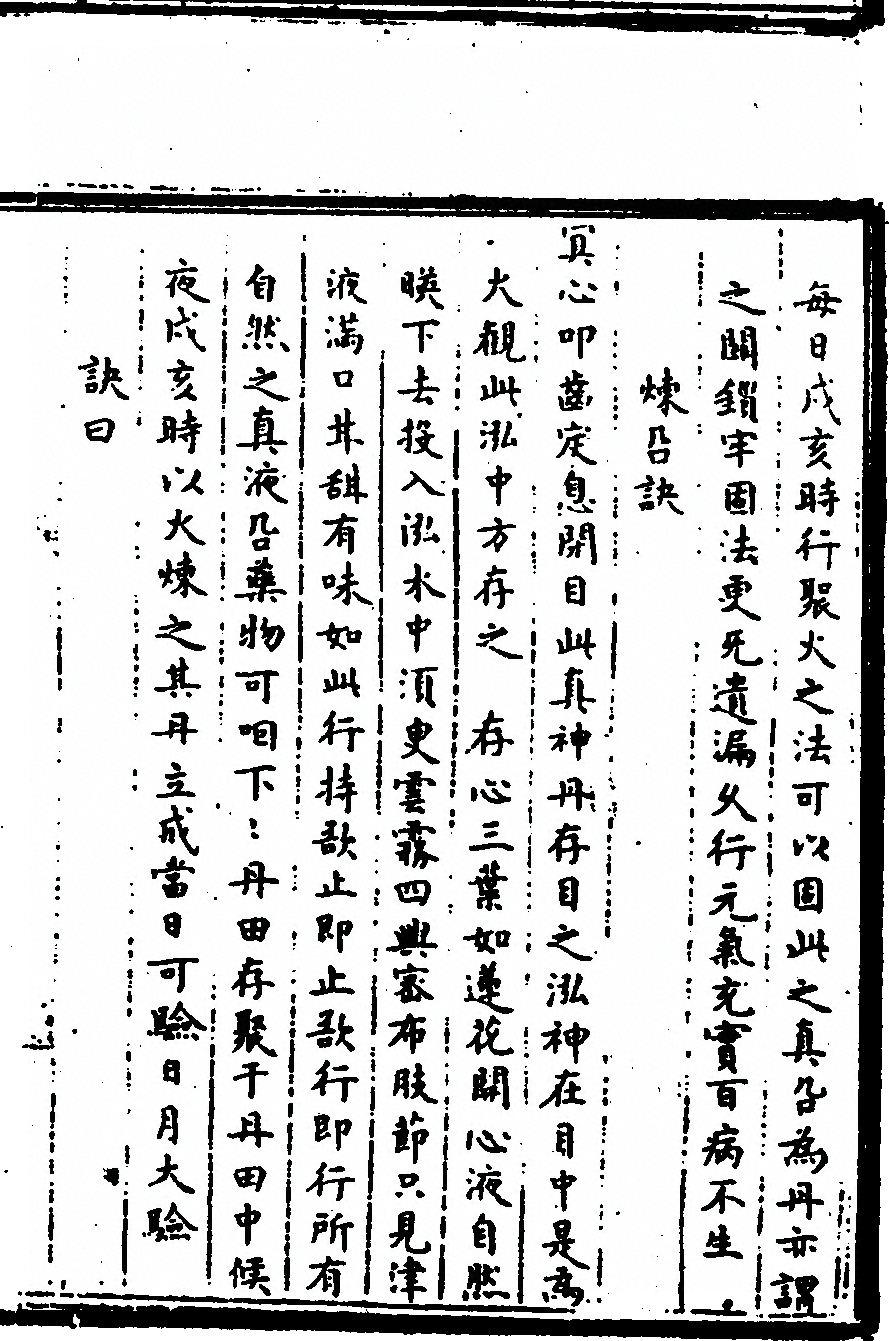 每日戍亥時行聚火之法可以固此之真呂為丹亦謂
之關鎖牢固法更无遺漏久行元氣充實百病不生
煉呂訣
冥心叩齒定息閉目此真神丹存目之泓神在目中是為
大觀此泓中方存之 存心三葉如蓮花開心液自然
暎下去投入泓水中須臾雲霧四興密布肢節只見津
液滿口甘甜有味如此行持欲止即止欲行即行所有
自然之真液呂藥物可咽下：丹田存聚于丹田中候
夜戍亥時以火煉之其丹立成當日可驗日月大驗
訣曰